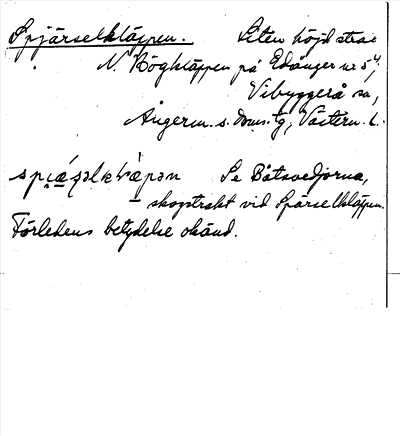 Spjärselkläppen. Liten höjd strax
N. Högkläppen på Edånger nr 5 4,
Vibyggerå sn,
Ångerm. s. doms:g, Västern. l.
Se Båtsvedjorna,
skogstrakt vid Spärselkläppen.
Förledens betydelse okänd.